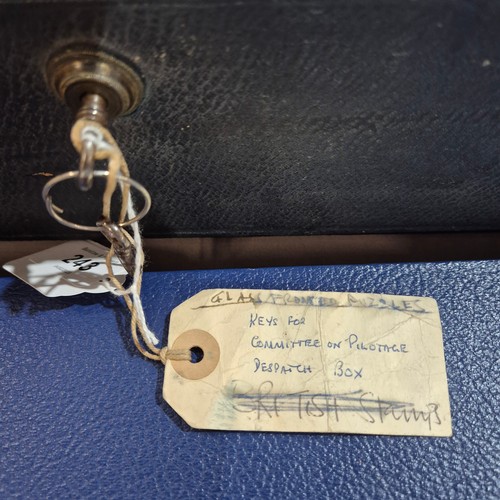 248
GLASS FRONTED PUZZLES
KEYS FOR
COMMITTEE ON PILOTAGE
DESPATCH BOX
BRITISH Stamps